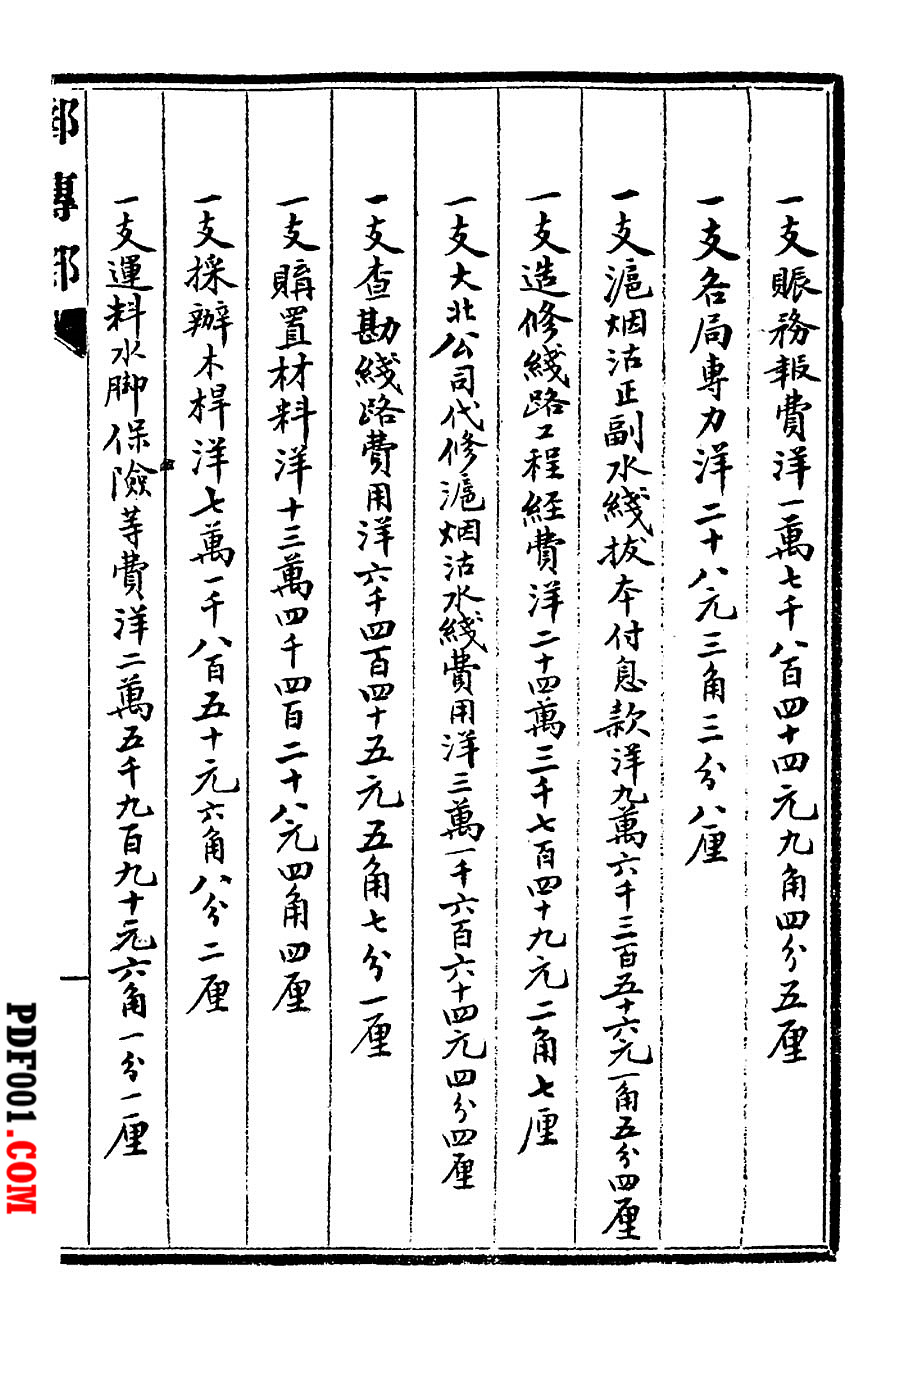 一支賬務報費洋一萬七千八百四十四元九角四分五厘
一支各局專力洋二十八元三角三分八厘
一支滬烟沽正副水綫拔本付息款洋九萬六千三百五十六元一角五分四厘
一支造修綫路工程経費洋二十四萬三千七百四十九元二角七厘
一支大北公司代修滬烟沽水綫費用洋三萬一千六百六十四元四分四厘
一支查勘綫路費用洋六千四百四十五元五角七分一厘
一支購置材料洋十三萬四千四百二十八元四角四厘
一支採辦木桿洋七萬一千八百五十元六角八分二厘
一支運料水脚保險等費洋二萬五千九百九十元六角一分二厘
郵傳部
PDF001.COM